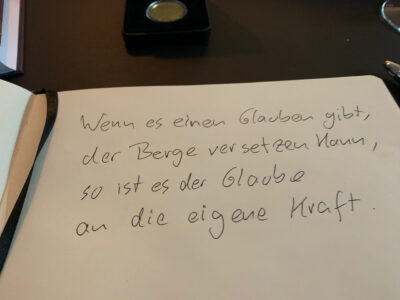 Wenn es einen Glauben gibt,
der Berge versetzen kann,
so ist es der Glaube
an die eigene Kraft.